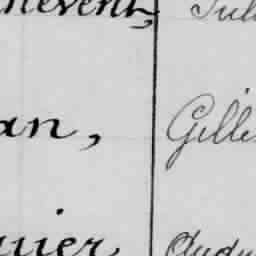 nevent, Jul
an, Gille
uier, Audu